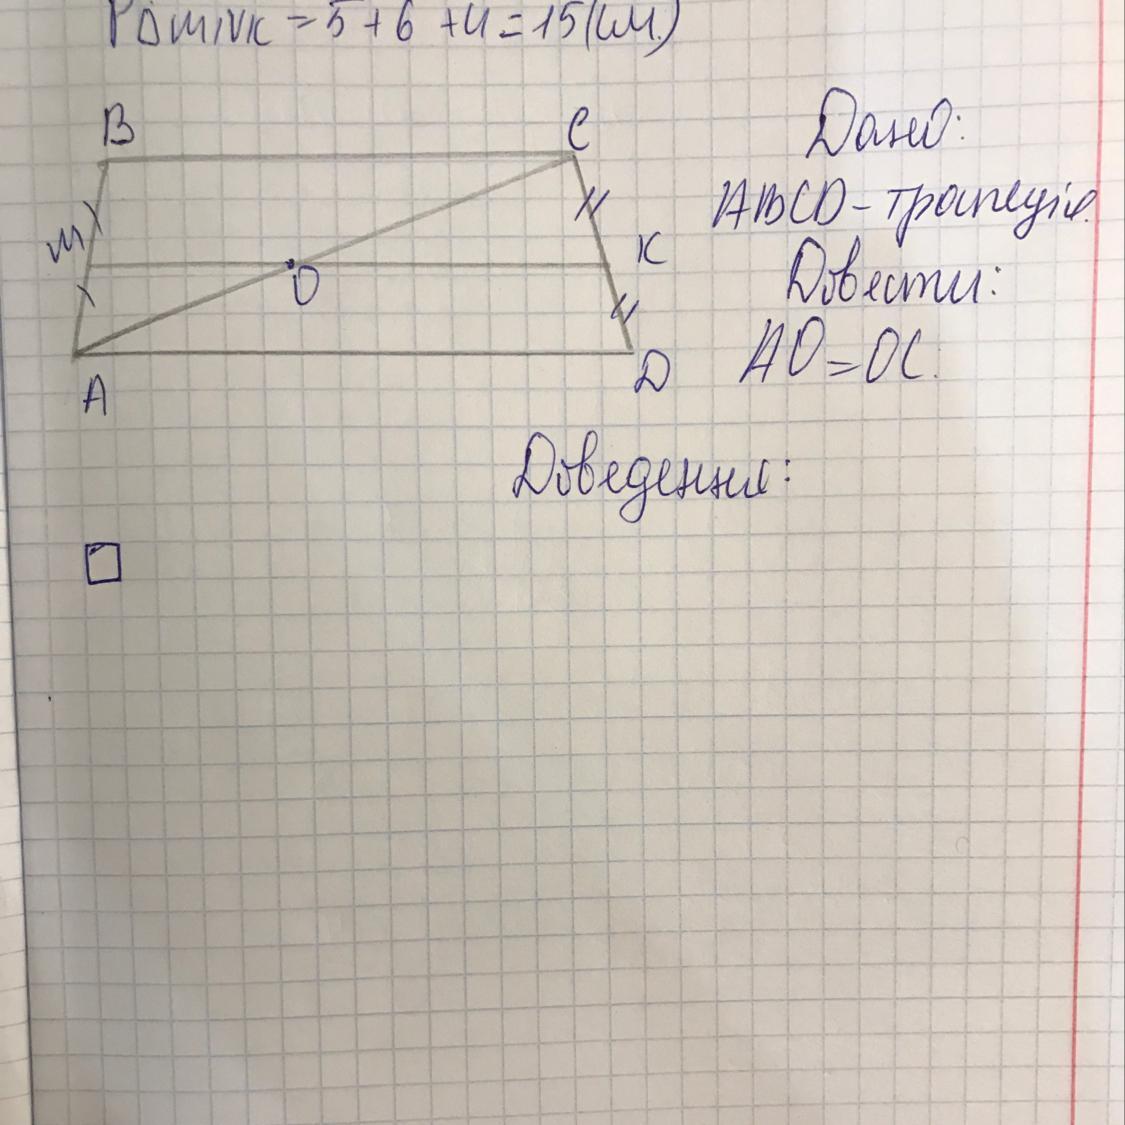 P△MNK = 5 + 6 + 4 = 15 (см.)
B
C
M
K
O
A
D
Дано:
ABCD - трапеція.
Довести:
AO = OC.
Доведення: